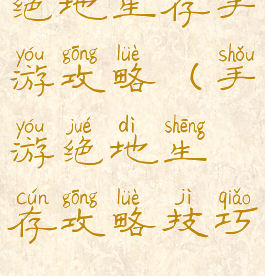 绝地生存手
yóu gōng lüè shǒu
游攻略（手
yóu jué dì shēng
游绝地生
cún gōng lüè jì qiǎo
存攻略技巧